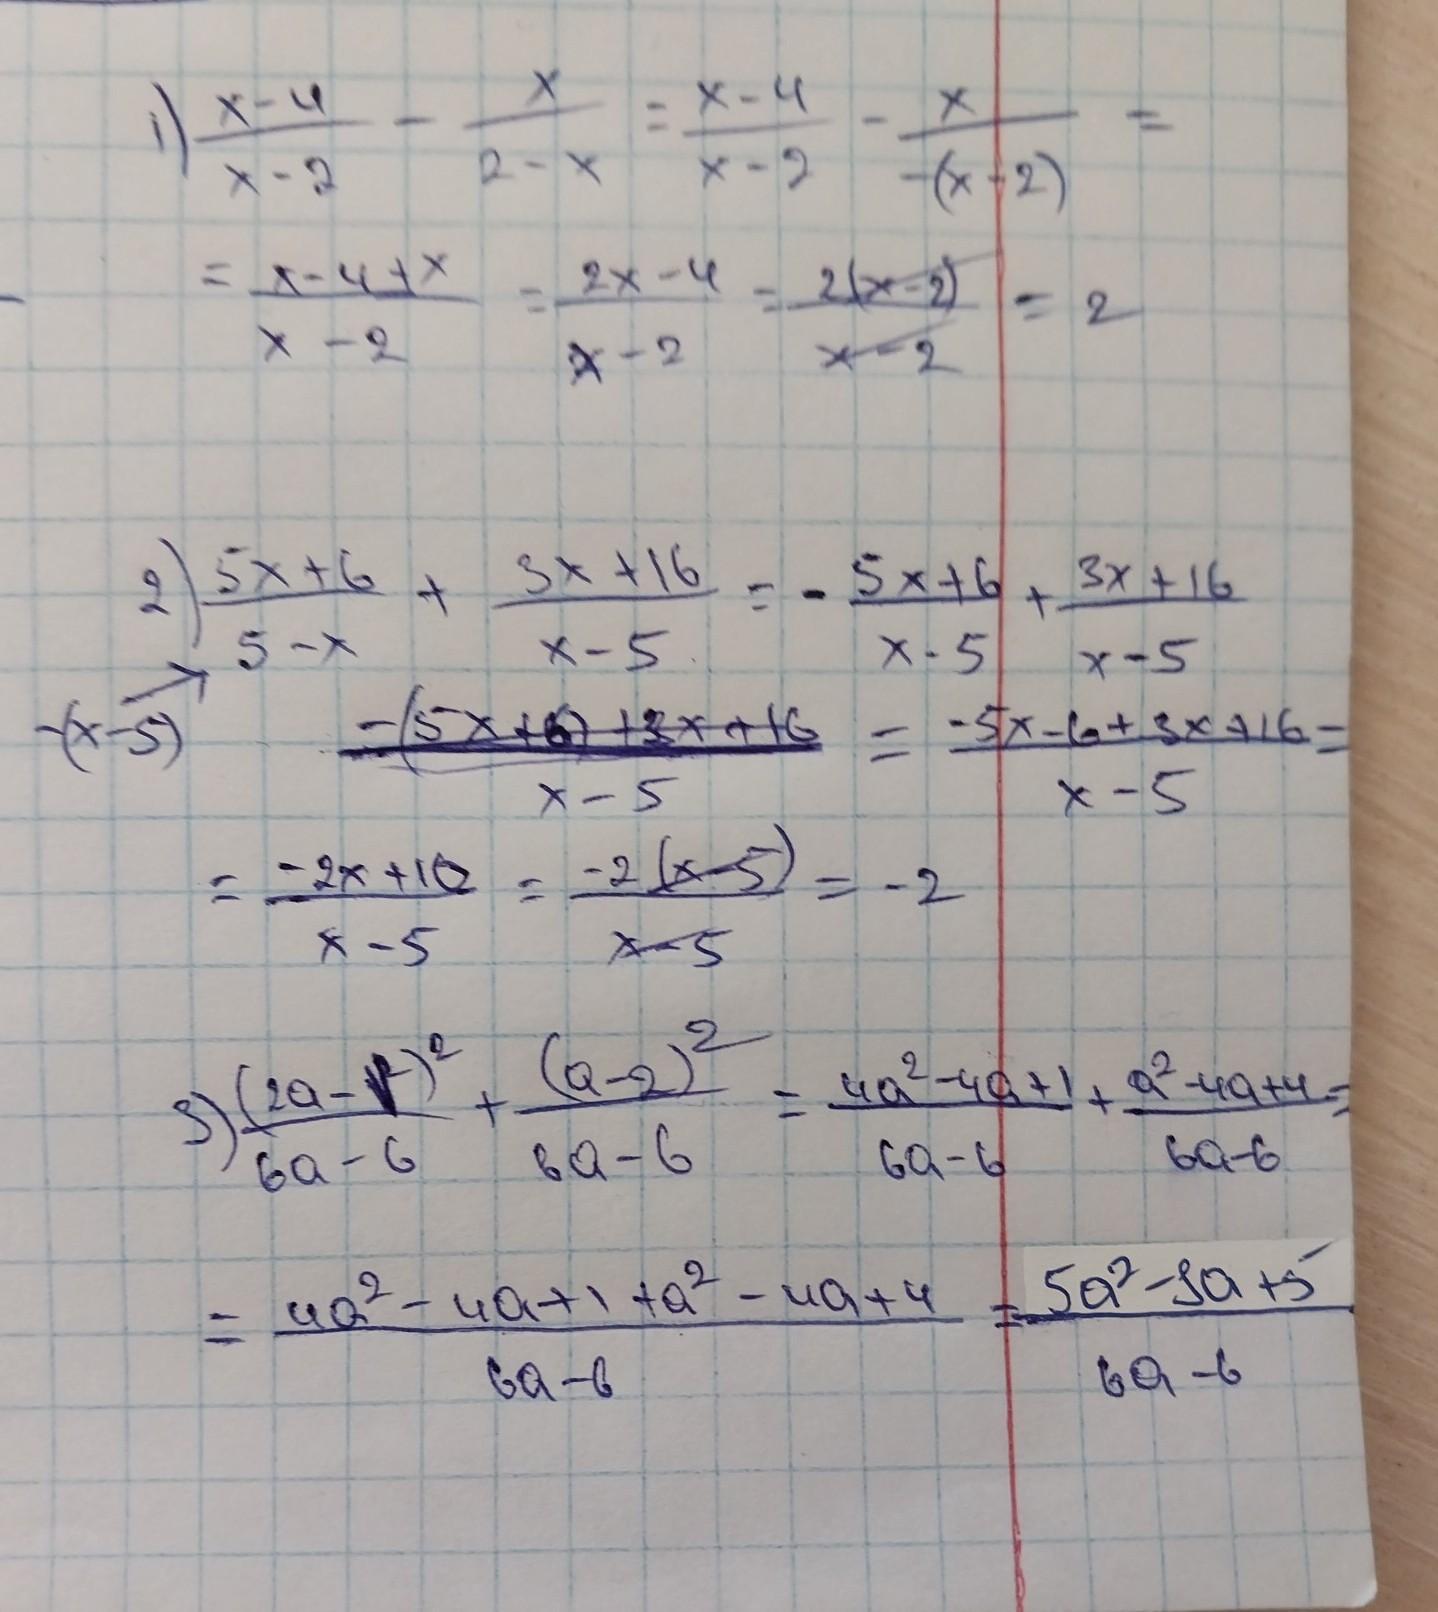 1) (x-4)/(x-2) - x/(2-x) = (x-4)/(x-2) - x/(-(x-2)) =
= (x-4+x)/(x-2) = (2x-4)/(x-2) = 2(x-2)/(x-2) = 2
2) (5x+6)/(5-x) + (3x+16)/(x-5) = - (5x+6)/(x-5) + (3x+16)/(x-5)
-(x-5) (-(5x+6)+3x+16)/(x-5) = (-5x-6+3x+16)/(x-5) =
= (-2x+10)/(x-5) = -2(x-5)/(x-5) = -2
3) (2a-1)²/(6a-6) + (a-2)²/(6a-6) = (4a²-4a+1)/(6a-6) + (a²-4a+4)/(6a-6) =
= (4a²-4a+1+a²-4a+4)/(6a-6) = (5a²-3a+5)/(6a-6)